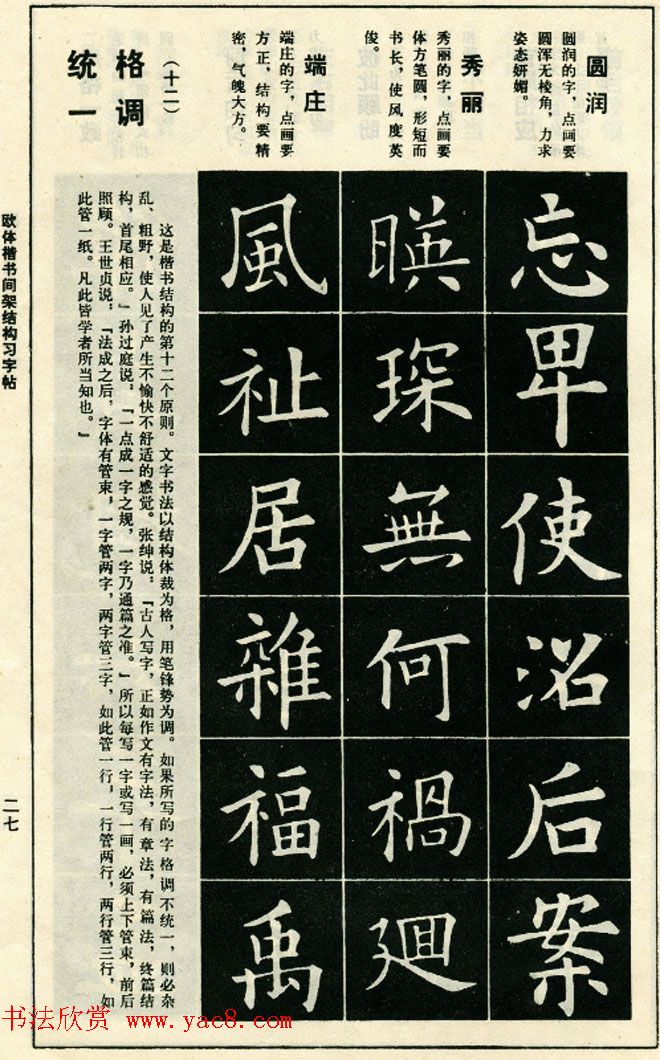 圆润
圆润的字，点画要
圆浑无棱角，力求
姿态妍媚。
忘
卑
使
沼
后
案
秀丽
秀丽的字，点画要
体方笔圆，形短而
书长，使风度英
俊。
暎
琛
無
何
禍
廻
端庄
端庄的字，点画要
方正，结构要精
密，气魄大方。
風
祉
居
雜
福
禹
（十二）
格调
统一
这是楷书结构的第十二个原则。文字书法以结构体裁为格，用笔锋势为调。如果所写的字格调不统一，则必杂
乱、粗野，使人见了产生不愉快不舒适的感觉。张绅说：『古人写字，正如作文有字法，有章法，有篇法，终篇结
构，首尾相应。』孙过庭说，『一点成一字之规，一字乃通篇之准。』所以每写一字或写一画，必须上下管束，前后
照顾。王世贞说，『法成之后，字体有管束，一字管两字，两字管三字，如此管一行，一行管两行，两行管三行，如
此管一纸。凡此皆学者所当知也。』
欧体楷书间架结构习字帖
二七
书法欣赏 www.yac8.com